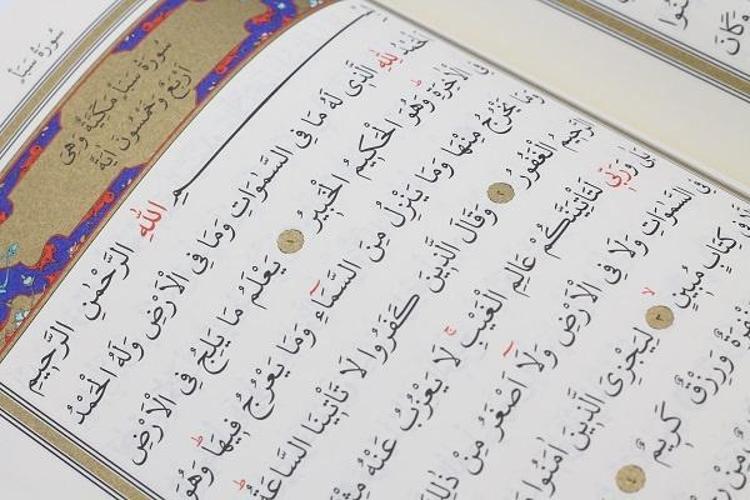 سُورَةُ سَبَأٍ
سُورَةُ سَبَأٍ مَكِّيَّةٌ وَهِيَ
اَرْبَعٌ وَخَمْسُونَ اٰيَةً
ـمِ اللّٰهِ الرَّحْمٰنِ الرَّحِيمِ
اَلْحَمْدُ لِلّٰهِ الَّذٖى لَهُ مَا فِى السَّمٰوَاتِ وَمَا فِى الْاَرْضِ وَلَهُ الْحَمْدُ
الْاٰخِرَةِ وَهُوَ الْحَكٖيمُ الْخَبٖيرُ ١ يَعْلَمُ مَا يَلِجُ فِى الْاَرْضِ
وَمَا يَخْرُجُ مِنْهَا وَمَا يَنْزِلُ مِنَ السَّمَاءِ وَمَا يَعْرُجُ فٖيهَا وَهُوَ
الرَّحٖيمُ الْغَفُورُ ٢ وَقَالَ الَّذٖينَ كَفَرُوا لَا تَاْتٖينَا السَّاعَةُ
بَلٰى وَرَبّٖى لَتَاْتِيَنَّكُمْ عَالِمِ الْغَيْبِ لَا يَعْزُبُ عَنْهُ
السَّمٰوَاتِ وَلَا فِى الْاَرْضِ وَلَا اَصْغَرُ مِنْ ذٰلِكَ
كِتَابٍ مُبٖينٍ ٣ لِيَجْزِىَ الَّذٖينَ اٰمَنُوا
وَرِزْقٌ كَرٖيمٌ ٤